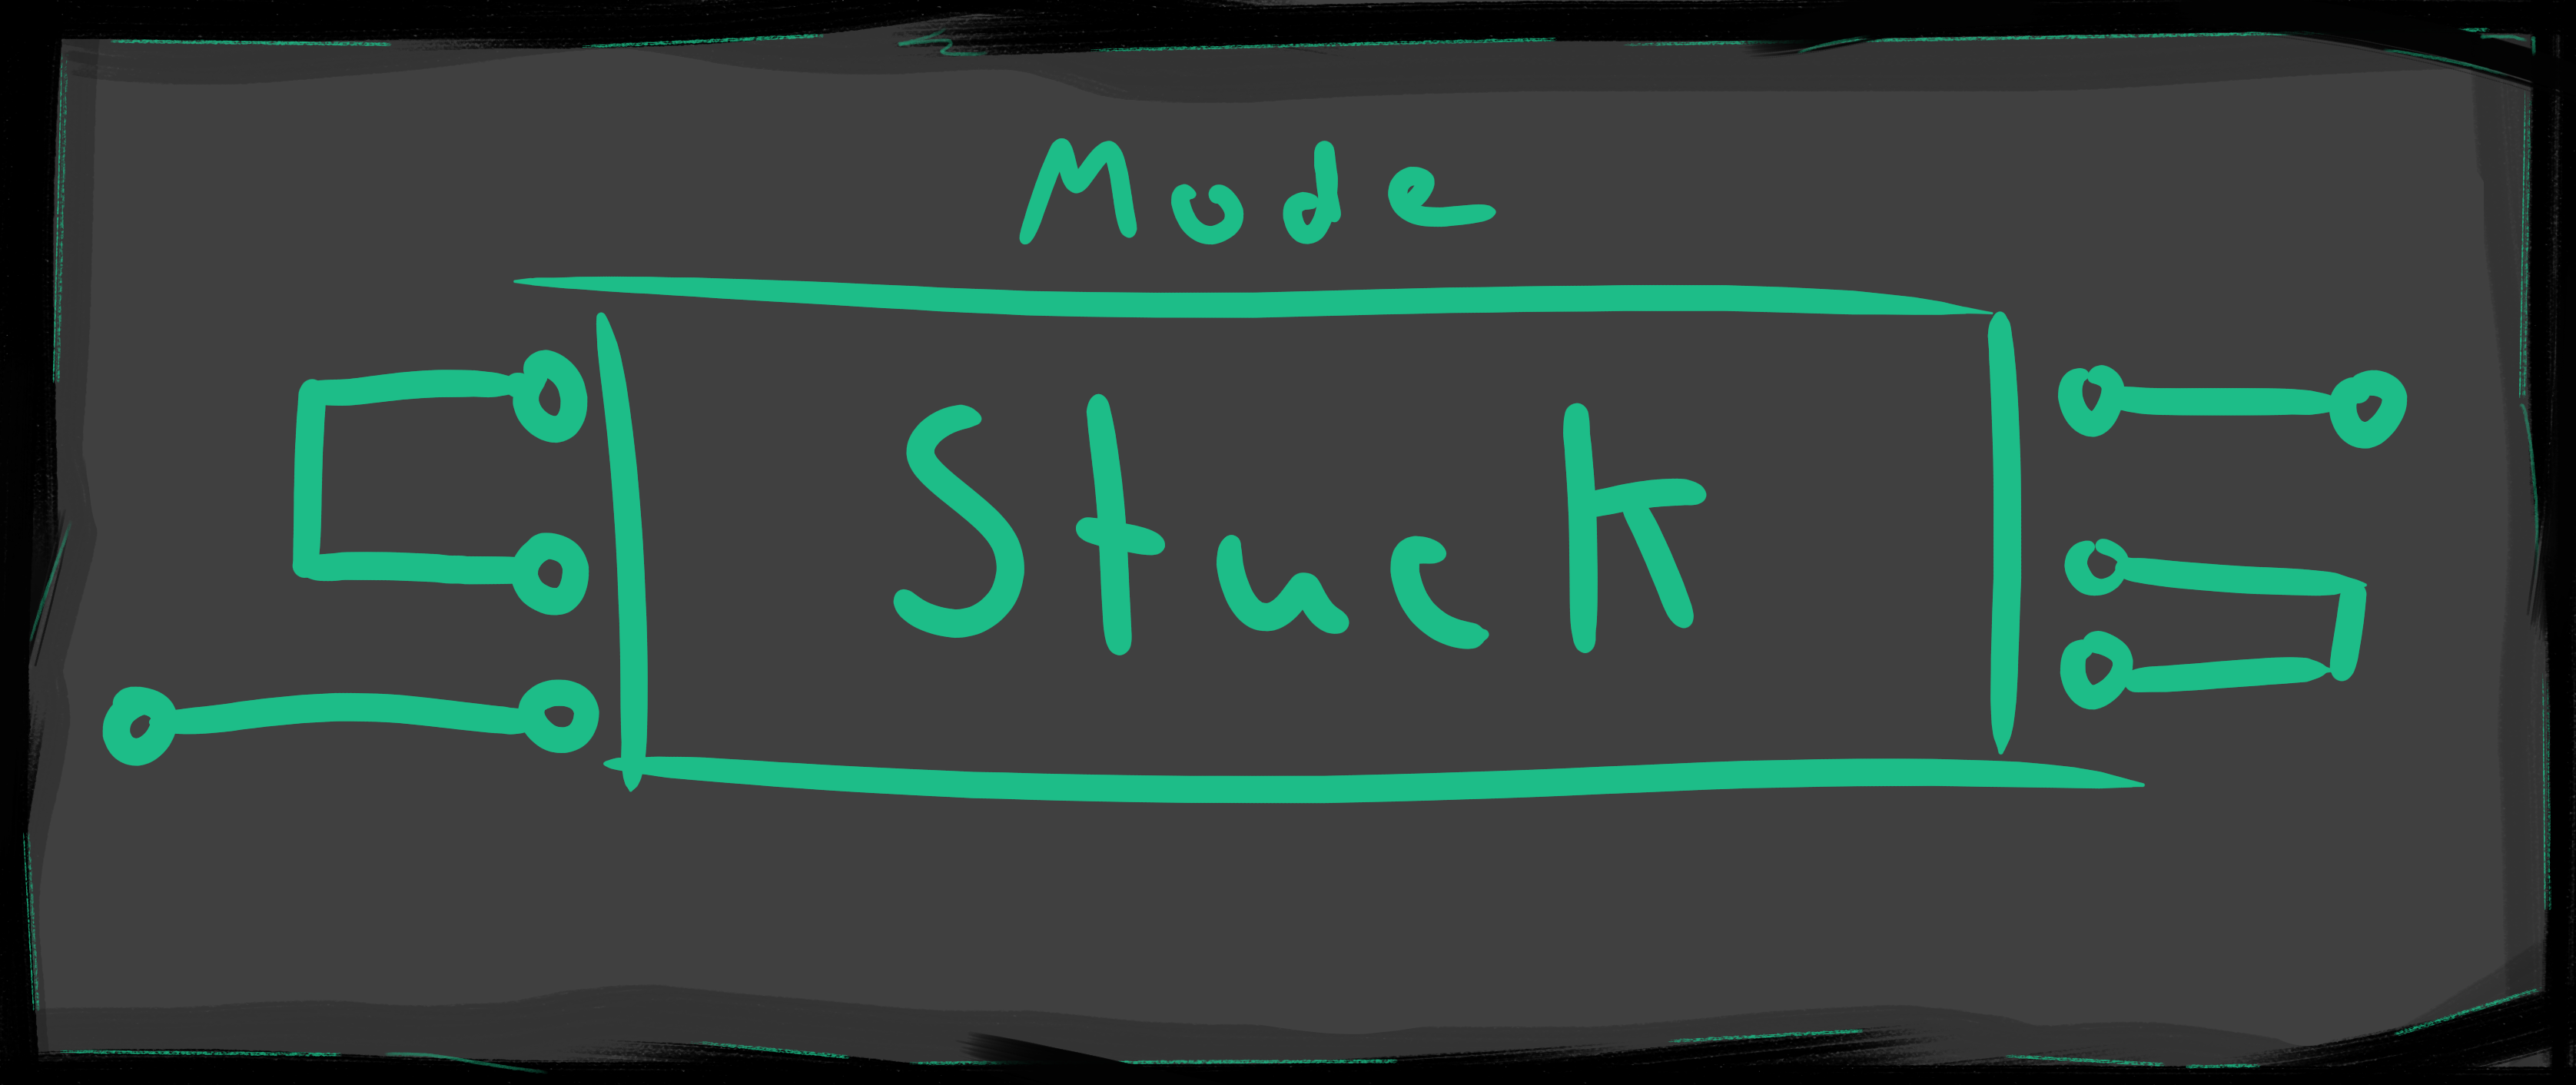 Mode
Stuck